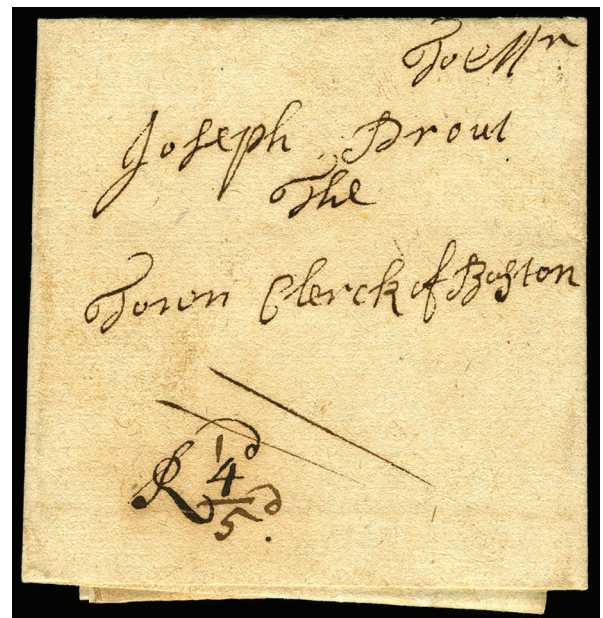 To Mr
Joseph Prout
The
Town Clerck of Boston
R 1d
4d
5